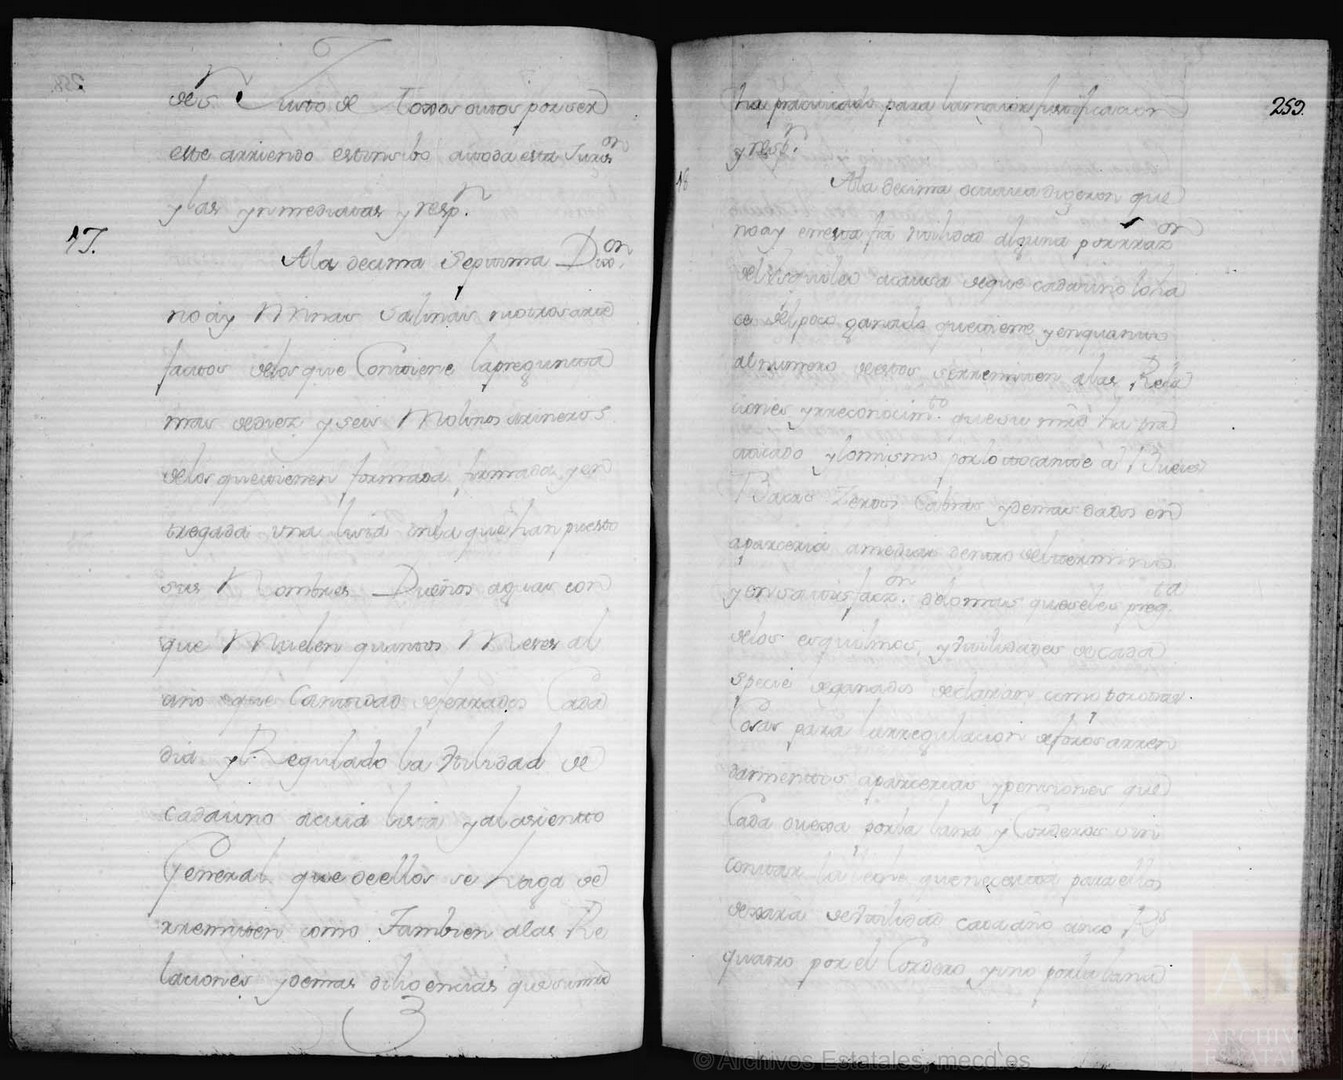 des Justo de todos otros por ser
este arriendo estensibo a toda esta Juron
y las ynmediatas y resp.n
17. A la decima septima Dixon.
no ay Minas Salinas ni otros arte
factos de los que Contiene la pregunta
mas de diez y seis Molinos arineros
de los que tienen formada, firmada y en
tregada una lista en la que han puesto
sus Nombres Dueños aguas con
que Muelen quantos Meses al
año y que Cantidad de ferrados Cada
dia y Regulado la Utilidad de
cada uno a cuia lista y al asiento
General que de ellos se haga se
rremiten como Tambien a las Re
laciones y demas dilixencias que su md
259.
ha practicado para la maior justificacion
y resp.n
18 A la decima octava digeron que
no ay en esta fra Utilidad alguna por rrazon
del Esquileo a causa de que cada uno lo ha
ce del poco ganado que tiene, y en quanto
al numero de estos se rremiten a las Rela
ciones y rreconocim.to que su mrd ha pra
cticado y lo mismo por lo tocante a Bueies
Bacas Zerdos Cabras y demas dados en
aparceria a medias dentro del termino
y en satisfaz.on a lo mas que se les preg.ta
de los esquilmos, y Utilidades de cada
specie de ganados declaran como todas las
Cosas para la rregulacion de foros arren
damientos aparcerias y pensiones que
Cada oveja por la lana y Corderos sin
contar la leche que necesita para ellos
dexara de Utilidad cada año cinco R.s
quatro por el Cordero, y uno por la lana
© Archivos Estatales, mecd.es
ARCHIVOS
ESTATALES